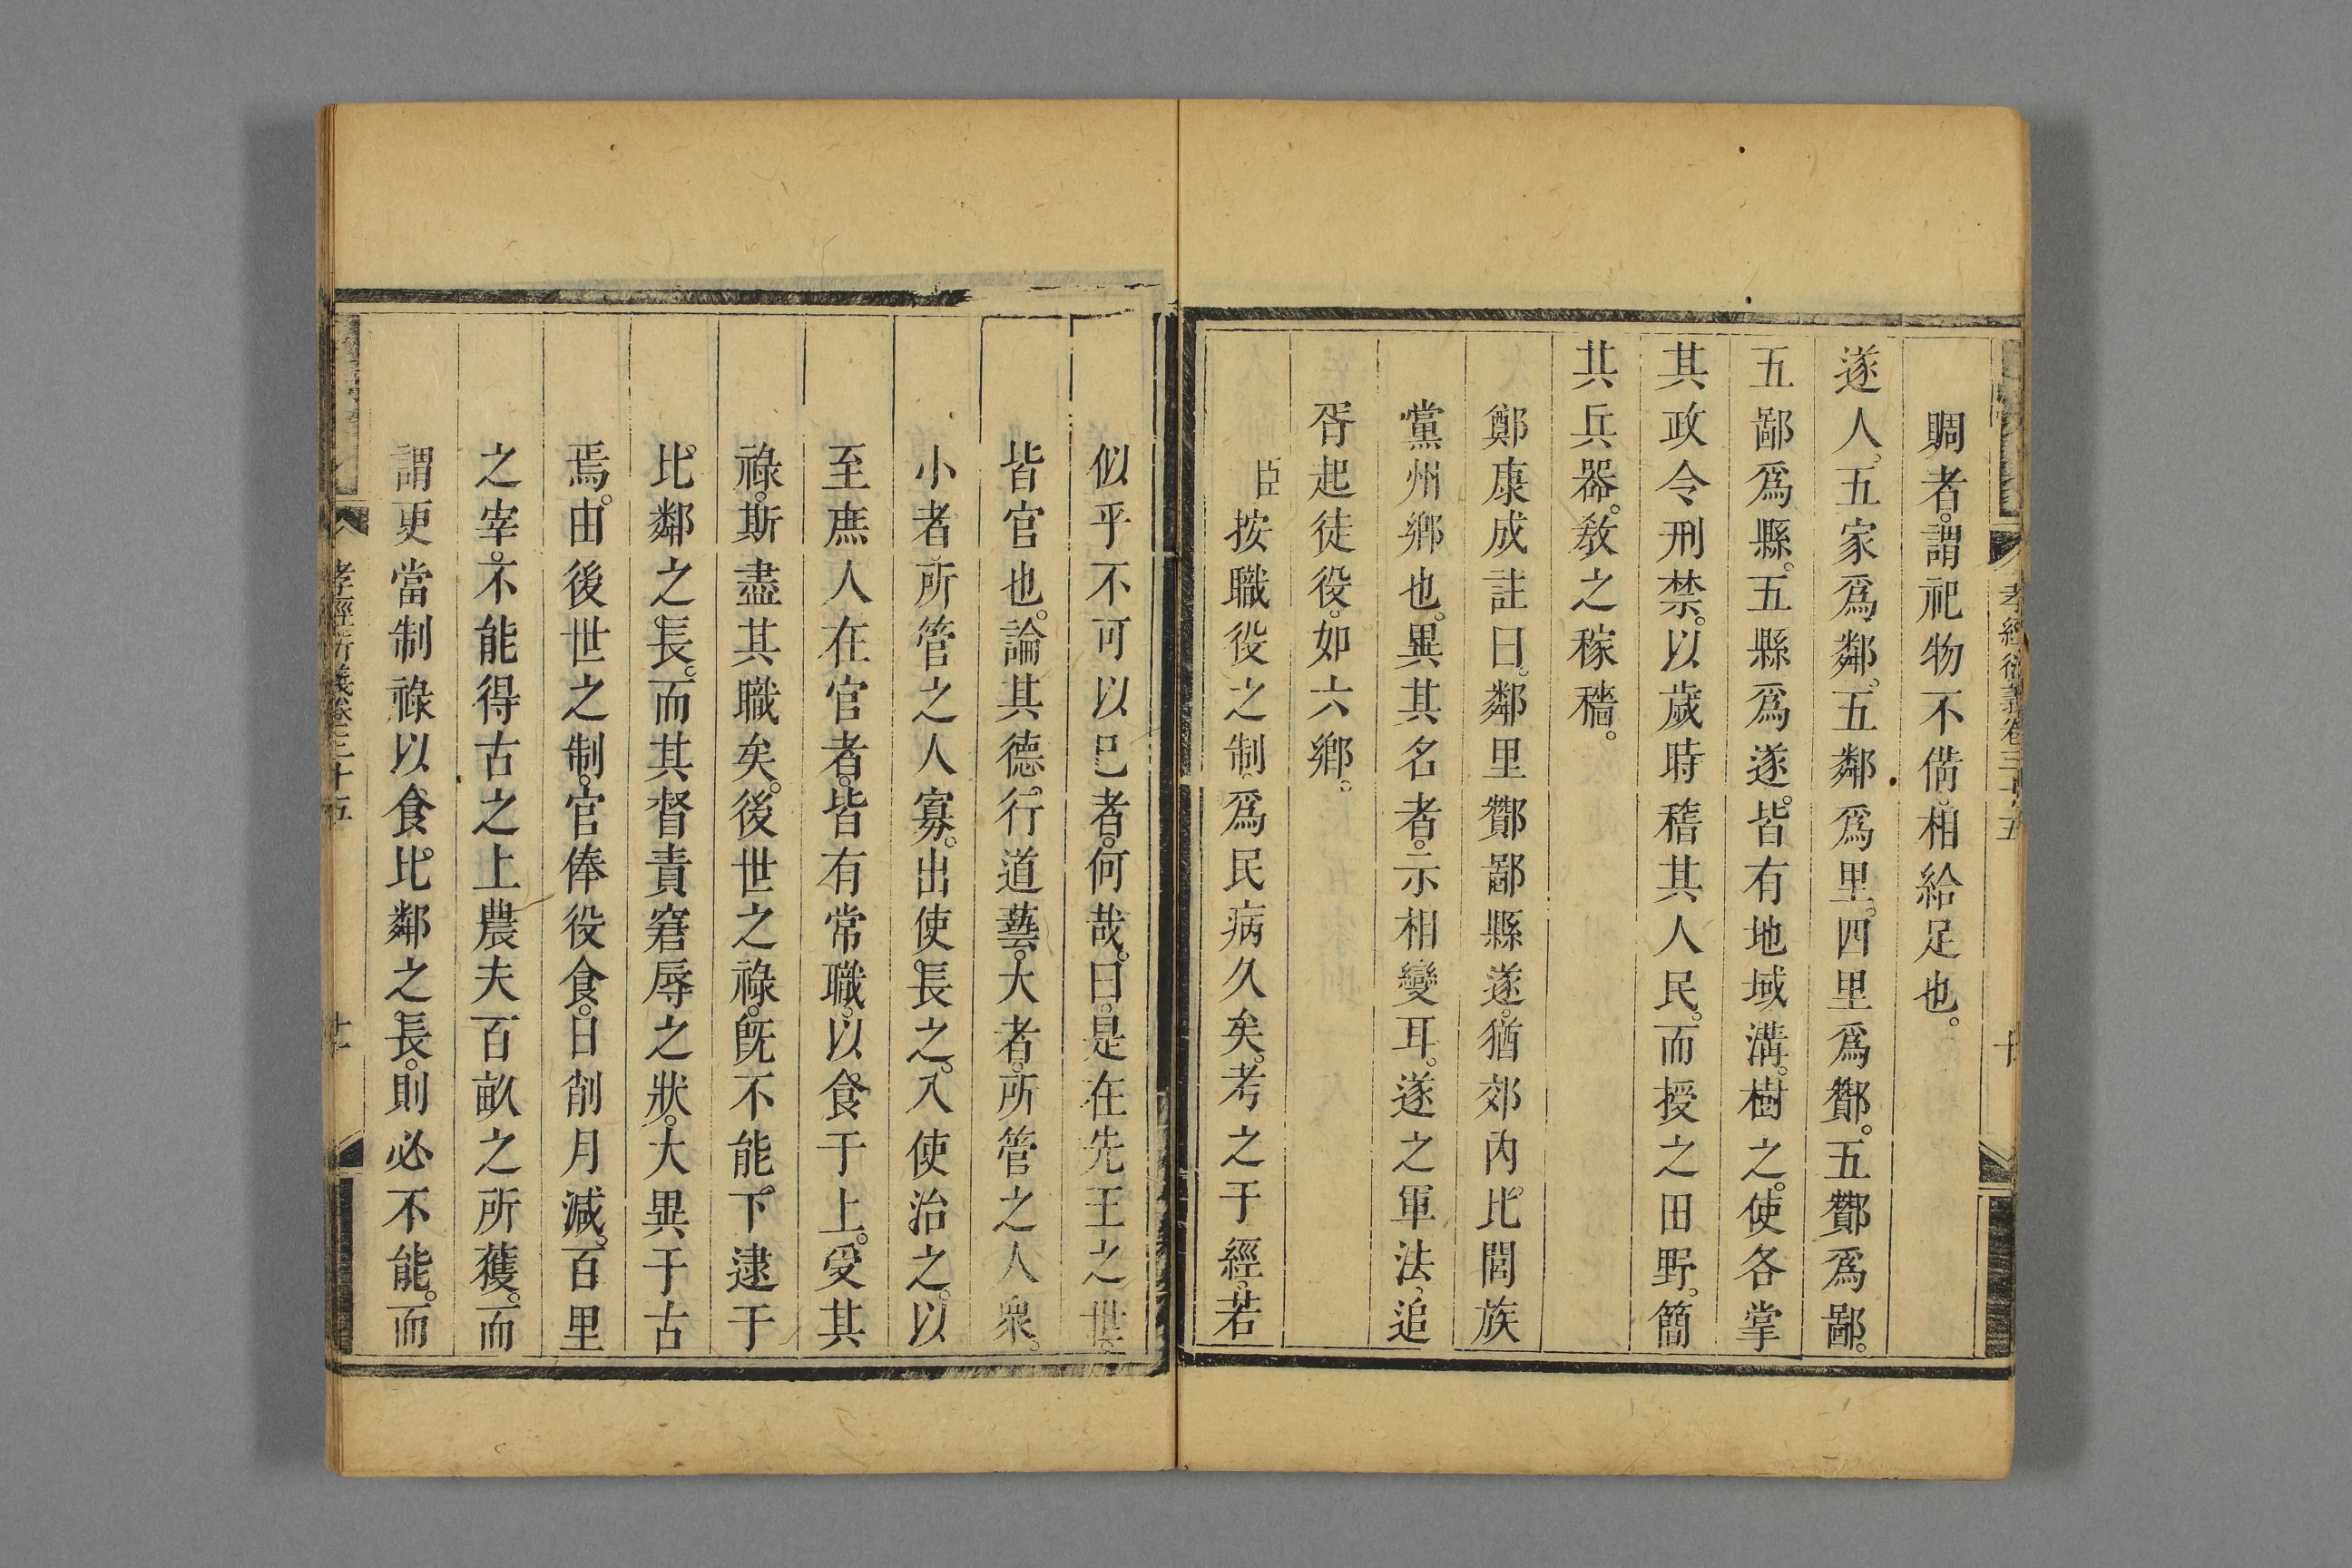 孝經衍義卷三十五
賙者。謂祀物不備。相給足也。
遂人。五家爲鄰。五鄰爲里。四里爲酇。五酇爲鄙。
五鄙爲縣。五縣爲遂。皆有地域溝。樹之。使各掌
其政令刑禁。以歲時稽其人民。而授之田野。簡
其兵器。敎之稼穡。
鄭康成註曰。鄰里酇鄙縣遂。猶郊內比閭族
黨州鄉也。異其名者。示相變耳。遂之軍法。追
胥起徒役。如六鄉。
臣按職役之制。爲民病久矣。考之于經。若
似乎不可以已者。何哉。曰。是在先王之世。
皆官也。論其德。行道藝。大者。所管之人衆。
小者所管之人寡。出使長之。入使治之。以
至庶人在官者。皆有常職。以食于上。受其
祿。斯盡其職矣。後世之祿。旣不能下逮于
比鄰之長。而其督責窘辱之狀。大異于古
焉。由後世之制。官俸役食。日削月減。百里
之宰。不能得古之上農夫百畝之所獲。而
謂更當制祿以食比鄰之長。則必不能。而
孝經衍義卷三十五 十一